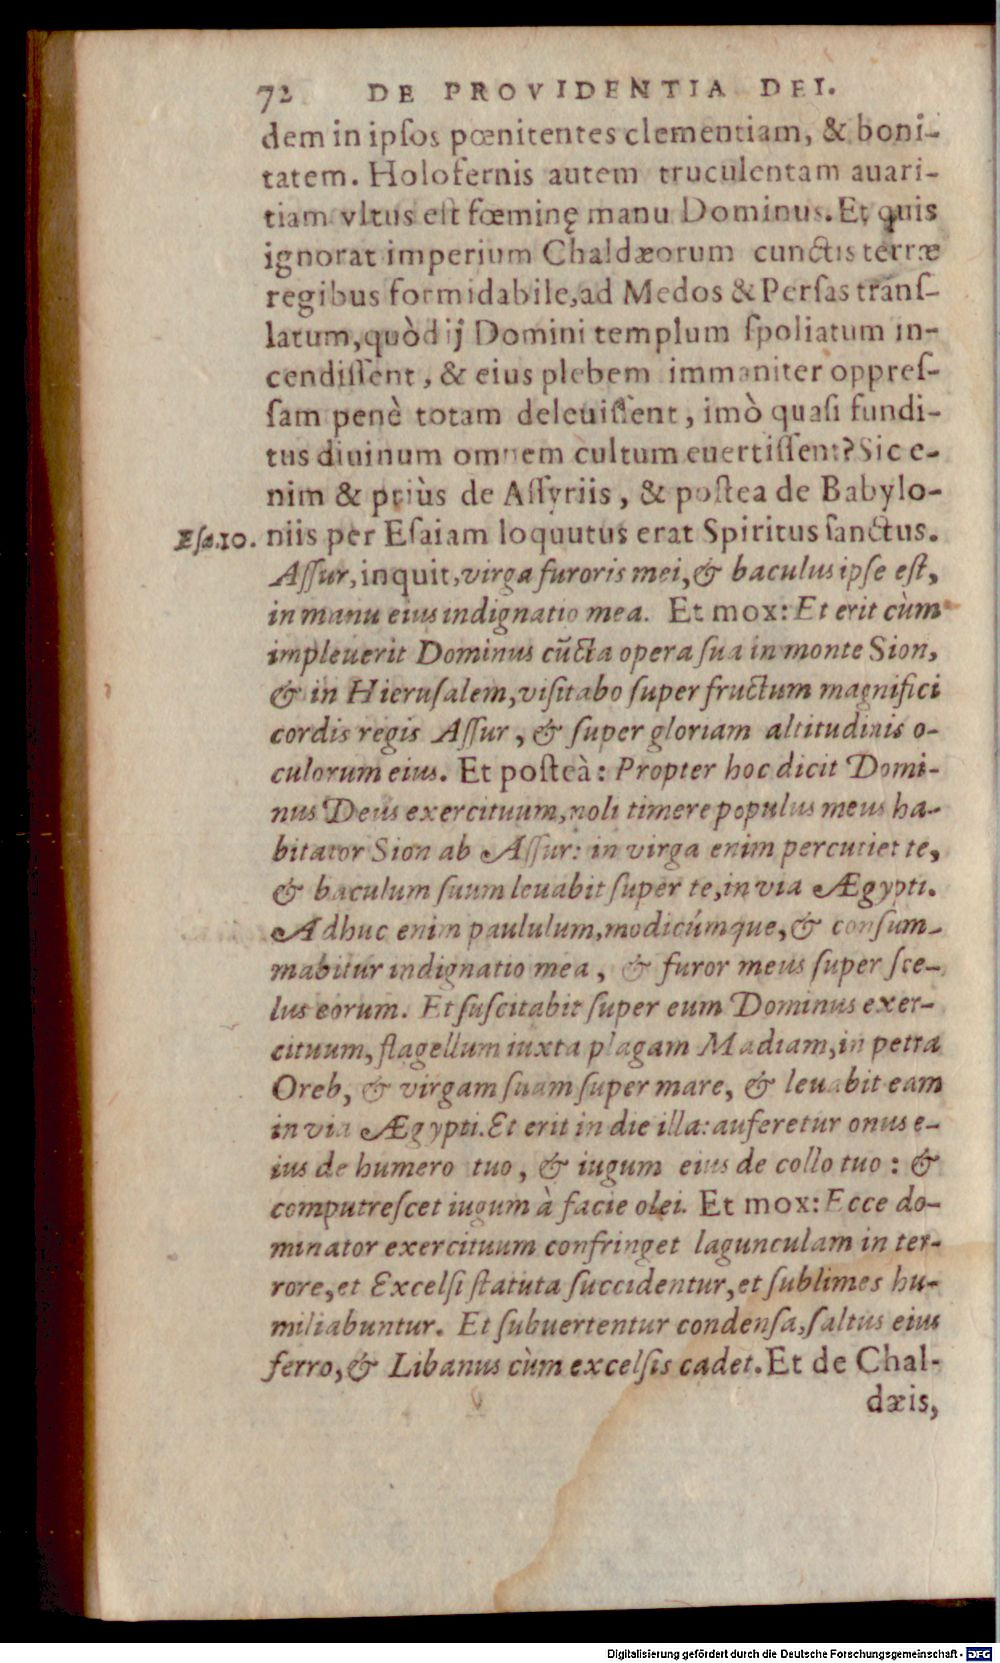 72 DE PROVIDENTIA DEI.
dem in ipſos pœnitentes clementiam, & boni-
tatem. Holofernis autem truculentam auari-
tiam vltus eſt fœminę manu Dominus. Et quis
ignorat imperium Chaldæorum cunctis terræ
regibus formidabile, ad Medos & Perſas tranſ-
latum, quòd ij Domini templum ſpoliatum in-
cendiſſent, & eius plebem immaniter oppreſ-
ſam penè totam deleuiſſent, imò quaſi fundi-
tus diuinum omnem cultum euertiſſent? Sic e-
nim & priùs de Aſſyriis, & poſtea de Babylo-
Eſa.10. niis per Eſaiam loquutus erat Spiritus ſanctus.
Aſſur, inquit, virga furoris mei, & baculus ipſe eſt,
in manu eius indignatio mea. Et mox: Et erit cùm
impleuerit Dominus cūcta opera ſua in monte Sion,
& in Hieruſalem, viſitabo ſuper fructum magnifici
cordis regis Aſſur, & ſuper gloriam altitudinis o-
culorum eius. Et poſteà: Propter hoc dicit Domi-
nus Deus exercituum, noli timere populus meus ha-
bitator Sion ab Aſſur: in virga enim percutiet te,
& baculum ſuum leuabit ſuper te, in via Ægypti.
Adhuc enim paululum, modicúmque, & conſum-
mabitur indignatio mea, & furor meus ſuper ſce-
lus eorum. Et ſuſcitabit ſuper eum Dominus exer-
cituum, flagellum iuxta plagam Madiam, in petra
Oreb, & virgam ſuam ſuper mare, & leuabit eam
in via Ægypti. Et erit in die illa: auferetur onus e-
ius de humero tuo, & iugum eius de collo tuo: &
computreſcet iugum à facie olei. Et mox: Ecce do-
minator exercituum confringet lagunculam in ter-
rore, et Excelſi ſtatuta ſuccidentur, et ſublimes hu-
miliabuntur. Et ſubuertentur condenſa, ſaltus eius
ferro, & Libanus cùm excelſis cadet. Et de Chal-
dæis,
Digitalisierung gefördert durch die Deutsche Forschungsgemeinschaft - DFG